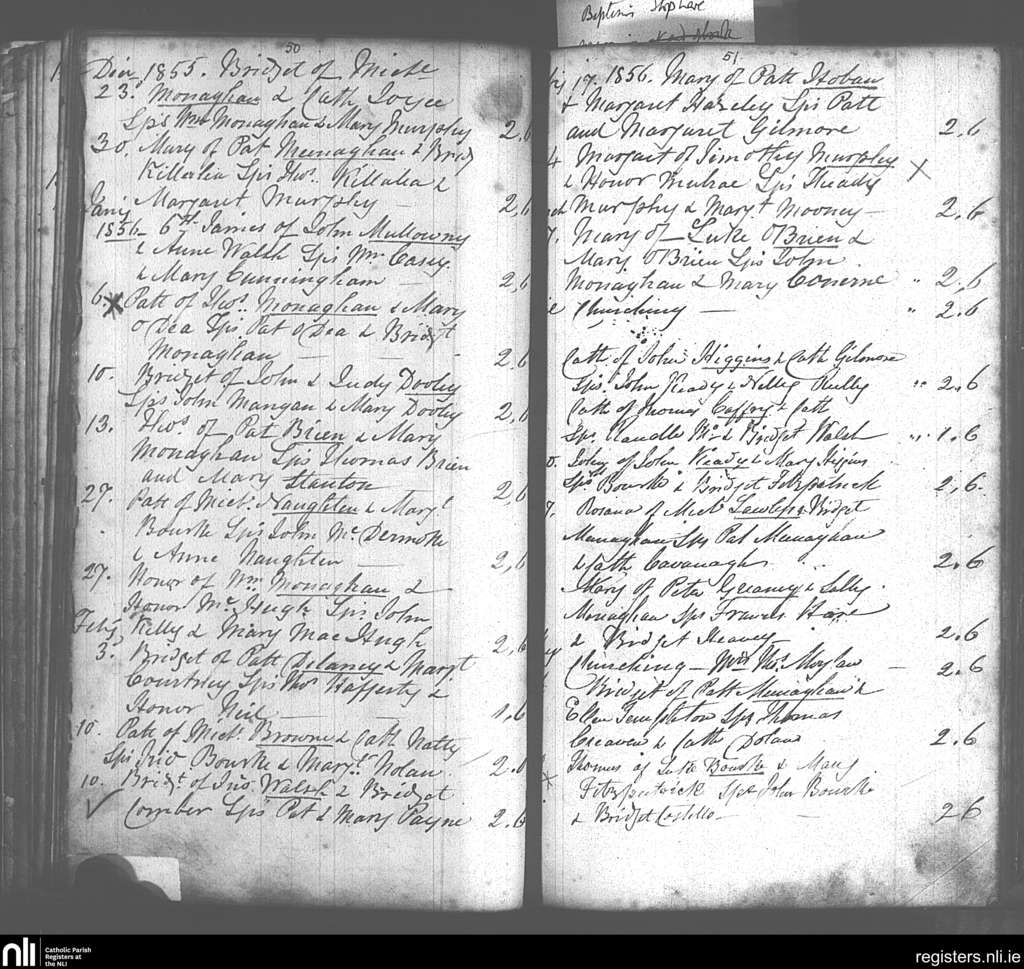 Baptisms
50
Decr 1855. Bridget of Michl
23. Monaghan & Cath Joyce
Sps Wm Monaghan & Mary Murphy 2,6
30. Mary of Pat Monaghan & Brid
Killelea Sps Thos. Killalea &
Margaret Murphy — 2,6
Jany
1856 — 6th James of John Mullowny
& Anne Walsh Sps Mr Casey
& Mary Cunningham — 2,6
6. Patk of Thos. Monaghan & Mary
O Dea Sps. Pat O Dea & Bridgt
Monaghan — 2.6
10. Bridget of John & Judy Dooley
Sps John Mangan & Mary Dooly 2,6
13. Thos of Pat Brien & Mary
Monaghan Sps Thomas Brien
and Mary Stanton — 2,6
27. Patk of Michl. Naughten & Margt
Bourke Sps John Mc Dermott
& Anne Naughten — 2,6
27. Honor of Wm Monaghan &
Honor Mc Hugh Sps. John
Feby Kelly & Mary Mac Hugh 2,6
3. Bridget of Patk Delaney & Margt
Courtney Sps Thos Rafferty &
Honor Neil — 1,6
10. Patk of Michl. Browne & Cath Natty
Sps Jno Bourke & Margt. Nolan 2.6
10. Bridgt. of Jno. Walsh & Bridget
Comber Sps Pat & Mary Payne 2.6
51
17. 1856. Mary of Patt Hoban
& Margaret Hazeley Sps Patt
and Margaret Gilmore 2.6
4 Margaret of Timothy Murphy
& Honor Sps Thady
Murphy & Maryt Mooney — 2.6
7. Mary of — Luke O'Brien &
Mary O'Brien Sps John
Monaghan & Mary " 2,6
Churching — " 2.6
Cath of John Higgins & Cath Gilmore
Sps. John Keady & Nelly Kelly " 2.6
Cath of Thomas Caffry & Cath
Sps. & Bridget Walsh " 1.6
0. John of John Keady & Mary Higgins
Sps. Bourke & Bridget Fitzpatrick 2,6.
7. Rosana of Michl Lawless & Bridget
Monaghan Sps Pat Monaghan
& Cath Cavanagh 2.6
Mary of Peter Greaney & Sally
Monaghan Sps Francis Hare
& Bridget Heavey 2.6
Churching — Mrs Thos. Moylan — 2.6
Bridget of Patt Monaghan &
Ellen Templeton Sps Thomas
Creaven & Cath Dolan 2.6
Thomas of Luke Bourke & Mary
Fitzpatrick Sps John Bourke
& Bridget Costello — 26
nli
Catholic Parish
Registers at
the NLI
registers.nli.ie